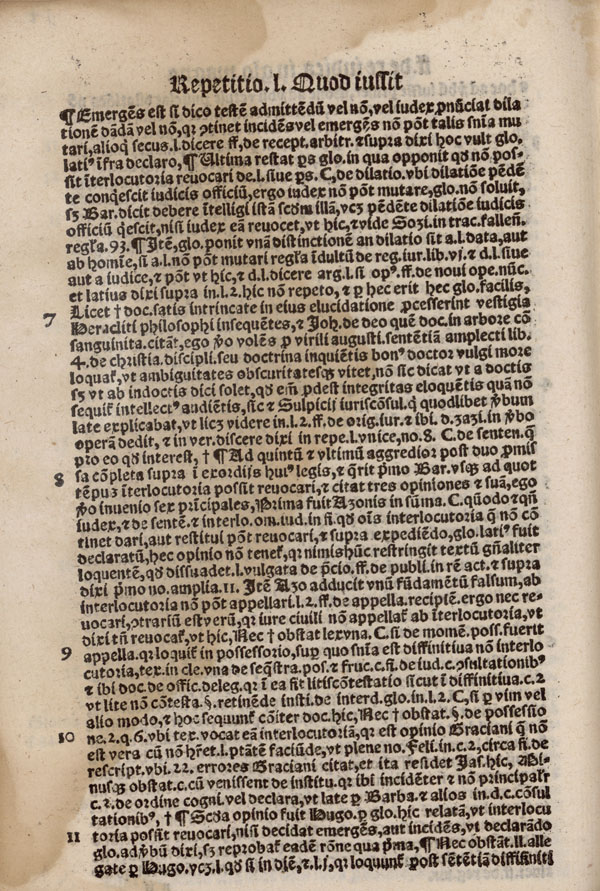 Repetitio. l. Quod iussit
¶ Emergēs est si dico testē admittēdū vel nō, vel iudex ꝓnūciat dila
tionē dādā vel nō, qꝛ ɔtinet incidēs vel emergēs nō pōt talis snīa mu
tari, alioqͥ secus. l. dicere ff, de recept. arbitr. ⁊ supra dixi hoc vult glo.
latiꝰ īfra declaro, ¶ Ultima restat ꝑs glo. in qua opponit qd nō pos-
sit īterlocutoria reuocari de. l. siue ꝑs. C, de dilatio. vbi dilatiōe pēdē
te conqͥescit iudicis officiū, ergo iudex nō pōt mutare, glo. nō soluit,
sꝫ Bar. dicit debere ītelligi istā scdm illā, vcꝫ pēdēte dilatiōe iudicis
officiū qͥescit, nisi iudex eā reuocet, vt hic, ⁊ vide Sozi. in trac. fallen̄.
regl̄a. 93. ¶ Itē, glo. ponit vnā distinctionē an dilatio sit a. l. data, aut
ab homīe, si a. l. nō pōt mutari regl̄a īdultū de reg. iur. lib. vj. ⁊ d. l. siue
aut a iudice, ⁊ pōt vt hic, ⁊ d. l. dicere arg. l. si opꝰ. ff. de noui ope. nūc.
et latius dixi supra in. l. 2. hic nō repeto, ⁊ ꝑ hec erit hec glo. facilis,
7 Licet † doc. satis intrincate in eius elucidatione ꝓcesserint vestigia
Heracliti philosophi insequētes, ⁊ Joh. de deo quē doc. in arbore cō
sanguinita. citāt, ego ꝟo volēs ꝓ virili augusti. sentētiā amplecti lib.
4. de christia. discipli. seu doctrina inquiētis bonꝰ doctor vulgi more
loquat, vt ambiguitates obscuritatesqꝫ vitet, nō sic dicat vt a doctis
sꝫ vt ab indoctis dici solet, qd em̄ ꝓdest integritas eloquētis quā nō
sequit intellectꝰ audiētis, sic ⁊ Sulpicij iuriscōsul. qͥ quodlibet ꝟbum
late explicabat, vt licꝫ videre in. l. 2. ff. de orig. iur. ⁊ ibi. d. zazi. in ꝟbo
operā dedit, ⁊ in ver. discere dixi in repe. l. vnice, no. 8. C. de senten. q̄
pro eo qd interest, † ¶ Ad quintū ⁊ vltimū aggredior post duo ꝓmis
8 sa cōpleta supra ī exordijs huiꝰ legis, ⁊ q̄rit pͥmo Bar. vsqꝫ ad quot
tēpus īterlocutoria possit reuocari, ⁊ citat tres opiniones ⁊ suā, ego
ꝟo inuenio sex prīcipales, Prima fuit Azonis in sūma. C. quōdo ⁊ qn̄
iudex, ⁊ de sentē. ⁊ interlo. om. iud. in fi. qd oīs interlocutoria q̄ nō cō
tinet dari, aut restitui pōt reuocari, ⁊ supra expediēdo, glo. latiꝰ fuit
declaratū, hec opinio nō tenet, qꝛ nimishūc restringit textū gn̄aliter
loquentē, qd dissuadet. l. vulgata de pͥcio, ff. de publi. in rē act. ⁊ supra
dixi pͥmo no. amplia. 11. Itē Azo adducit vnū fūdamētū falsum, ab
interlocutoria nō pōt appellari. l. 2. ff. de appella. recipiē. ergo nec re-
uocari, ɔtrariū est verū, qꝛ iure ciuili nō appellat ab īterlocutoria, vt
dixi tn̄ reuocat, vt hic, Nec † obstat lex vna. C. si de momē. poss. fuerit
9 appella. qꝛ loquit in possessorio, suꝑ quo snīa est diffinitiua nō interlo
cutoria, tex. in cle. vna de seq̄stra. pos. ⁊ fruc. c. fi. de iud. c. ɔsultationibꝰ
⁊ ibi doc. de offic. deleg. qꝛ ī ea fit litiscōtestatio sicut ī diffinitiua. c. 2
vt lite nō cōtesta. §. retinēde insti. de interd. glo. in. l. 2. C, si ꝑ vim vel
alio modo, ⁊ hoc sequunt cōiter doc. hic, Nec † obstat. §. de possessio
10 ne. 2. q. 6. vbi tex. vocat eā interlocutoriā, qꝛ est opinio Graciani q̄ nō
est vera cū nō hr̄et. l. ptātē faciūde, vt plene no. Feli. in. c. 2, circa fi. de
rescript. vbi. 22. errores Graciani citat, et ita residet Jas. hic, Mi-
nusqꝫ obstat. c. cū venissent de institu. qꝛ ibi incidēter ⁊ nō principalr̄
c. 2. de ordine cogni. vel declara, vt late ꝑ Barba. ⁊ alios in. d. c. cōsul
tationibꝰ, † ¶ Scd̄a opinio fuit Hugo. ꝑ glo. hic relatā, vt interlocu
11 toria possit reuocari, nisi decidat emergēs, aut incidēs, vt declarādo
glo. ad ꝟbū dixi, sꝫ reprobat eadē rōne qua pͥma, ¶ Nec obstāt. ll. alle
gate ꝑ Hugo. vcꝫ. l. qd si in diē, ⁊. l. j, qꝛ loquunt ꝓ post sētētiā diffiniti